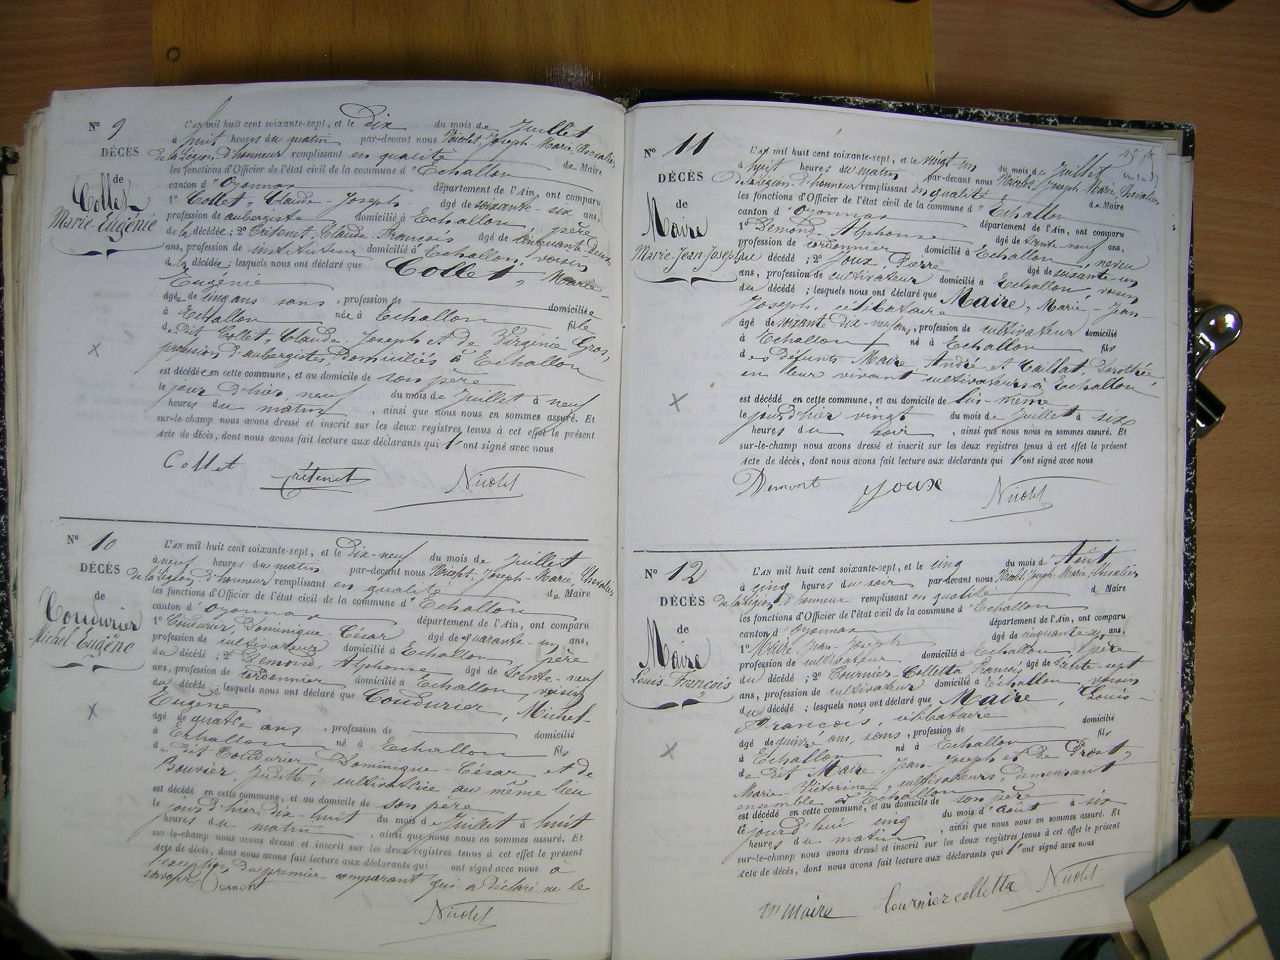 N° 9
DÉCÈS
de
Collet
Marie-Eugénie
L'an mil huit cent soixante-sept, et le Dix du mois de Juillet
à huit heures du matin par-devant nous Nicolet Joseph-Marie, Chevalier
de la Légion d'honneur remplissant en qualité de Maire
les fonctions d'Officier de l'état civil de la commune d'Echallon
canton d'Oyonnax département de l'Ain, ont comparu
1° Collet, Claude-Joseph âgé de soixante-six ans,
profession de aubergiste domicilié à Echallon, père
de la décédée; 2° Crétenet, Claude-François âgé de cinquante-deux
ans, profession de instituteur domicilié à Echallon, voisin
de la décédée; lesquels nous ont déclaré que Collet, Marie-
Eugénie
âgée de cinq ans, sans, profession de domiciliée
à Echallon née à Echallon fille
de dit Collet, Claude-Joseph et de Virginie Gros,
profession d'aubergistes, Domiciliés à Echallon
est décédée en cette commune, et au domicile de son père
le jour d'hier, neuf du mois de Juillet à neuf
heures du matin, ainsi que nous nous en sommes assuré. Et
sur-le-champ nous avons dressé et inscrit sur les deux registres tenus à cet effet le présent
Acte de décès, dont nous avons fait lecture aux déclarants qui l'ont signé avec nous
Collet Crétenet Nicolet
N° 10
DÉCÈS
de
Coudurier
Michel Eugène
L'an mil huit cent soixante-sept, et le Dix-neuf du mois de Juillet
à neuf heures du matin par-devant nous Nicolet, Joseph-Marie, Chevalier
de la Légion d'honneur remplissant en qualité de Maire
les fonctions d'Officier de l'état civil de la commune d'Echallon
canton d'Oyonnax département de l'Ain, ont comparu
1° Coudurier, Dominique-César âgé de quarante-un ans,
profession de cultivateur domicilié à Echallon, père
du décédé; 2° Demond, Alphonse âgé de trente-neuf
ans, profession de cordonnier domicilié à Echallon, voisin
du décédé; lesquels nous ont déclaré que Coudurier, Michel-
Eugène
âgé de quatre ans, profession de domicilié
à Echallon né à Echallon fils
de dit Coudurier Dominique-César et de
Bouvier, Judith, cultivatrice au même lieu
est décédé en cette commune, et au domicile de son père
le jour d'hier dix-huit du mois de Juillet à huit
heures du matin, ainsi que nous nous en sommes assuré. Et
sur-le-champ nous avons dressé et inscrit sur les deux registres tenus à cet effet le présent
Acte de décès, dont nous avons fait lecture aux déclarants qui ont signé avec nous à
l'exception du premier comparant qui a déclaré ne le
savoir
Nicolet
N° 11
DÉCÈS
de
Maire
Marie-Jean-Joseph
L'an mil huit cent soixante-sept, et le vingt-un du mois de Juillet
à huit heures du matin par-devant nous Nicolet, Joseph-Marie, Chevalier
de la Légion d'honneur remplissant en qualité de Maire
les fonctions d'Officier de l'état civil de la commune d'Echallon
canton d'Oyonnax département de l'Ain, ont comparu
1° Demond, Alphonse âgé de trente-neuf ans,
profession de cordonnier domicilié à Echallon, neveu
du décédé; 2° Joux Pierre âgé de soixante-un
ans, profession de cultivateur domicilié à Echallon, voisin
du décédé; lesquels nous ont déclaré que Maire, Marie-Jean-
Joseph, célibataire
âgé de soixante-dix-neuf ans, profession de cultivateur domicilié
à Echallon né à Echallon fils
de défunts Maire André et Caillat Dorothée
en leur vivant cultivateurs à Echallon
est décédé en cette commune, et au domicile de lui-même
le jour d'hier vingt du mois de Juillet à six
heures du soir, ainsi que nous nous en sommes assuré. Et
sur-le-champ nous avons dressé et inscrit sur les deux registres tenus à cet effet le présent
Acte de décès, dont nous avons fait lecture aux déclarants qui l'ont signé avec nous
Demont Joux Nicolet
N° 12
DÉCÈS
de
Maire
Louis-François
L'an mil huit cent soixante-sept, et le cinq du mois d'Août
à cinq heures du soir par-devant nous Nicolet, Joseph-Marie, Chevalier
de la Légion d'honneur remplissant en qualité de Maire
les fonctions d'Officier de l'état civil de la commune d'Echallon
canton d'Oyonnax département de l'Ain, ont comparu
1° Maire, Jean-Joseph âgé de cinquante-six ans,
profession de cultivateur domicilié à Echallon, père
du décédé; 2° Tournier-Colletta François, âgé de trente-sept
ans, profession de cultivateur domicilié à Echallon, voisin
du décédé; lesquels nous ont déclaré que Maire, Louis-
François, célibataire
âgé de quinze ans, sans, profession de domicilié
à Echallon né à Echallon fils
de dit Maire Jean-Joseph et de Prost,
Marie-Victorine, cultivateurs, demeurant
ensemble à Echallon
est décédé en cette commune, et au domicile de son père
le jourd'hui cinq du mois d'août à six
heures du matin, ainsi que nous nous en sommes assuré. Et
sur-le-champ nous avons dressé et inscrit sur les deux registres tenus à cet effet le présent
Acte de décès, dont nous avons fait lecture aux déclarants qui l'ont signé avec nous
m maire tournier colletta Nicolet